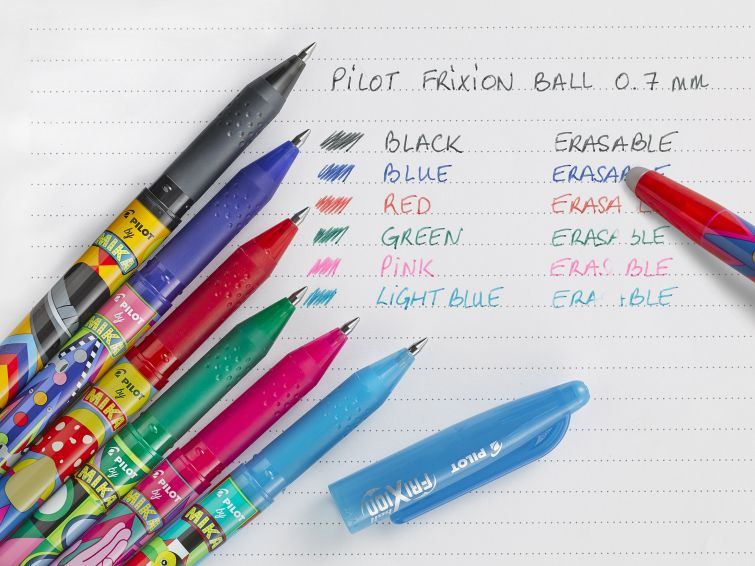 PILOT FRIXION BALL 0.7 mm
BLACK ERASABLE
BLUE ERASABLE
RED ERASA LE
GREEN ERASA BLE
PINK ERAS BLE
LIGHT BLUE ERA BLE
by PILOT
MIKA
by PILOT
MIKA
by PILOT
MIKA
by PILOT
MIKA
by PILOT
MIKA
by PILOT
MIKA
PILOT
FRIXION
ball